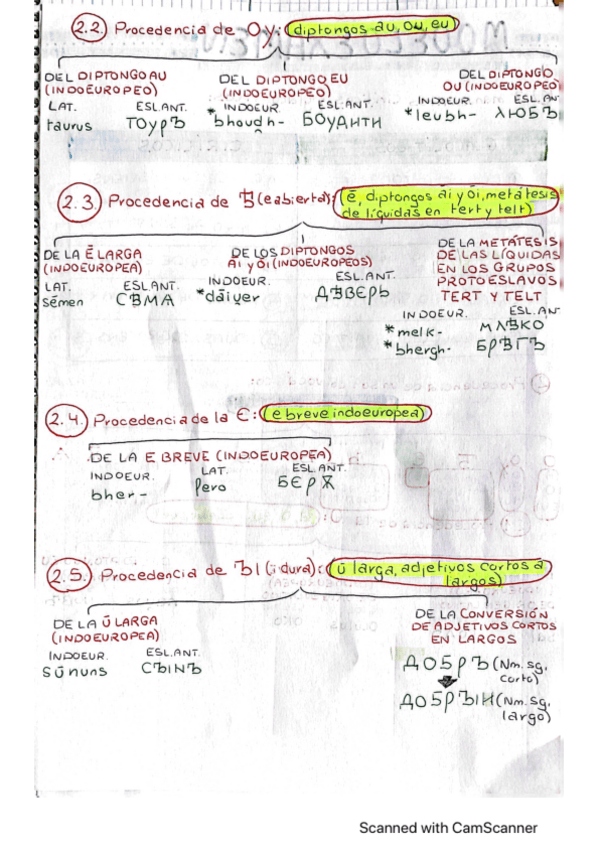 2.2. Procedencia de Оу: diptongos au, ou, eu
DEL DIPTONGO AU
(INDOEUROPEO)
LAT. ESL.ANT.
taurus ТОУРЪ
DEL DIPTONGO EU
(INDOEUROPEO)
*INDOEUR. ESL.ANT.
bhoudh- БОУДИТИ
DEL DIPTONGO
OU (INDOEUROPEO)
INDOEUR. ESL. AN
*leubh- ЛЮБЪ
2.3. Procedencia de Ѣ (e abierta): ē, diptongos ai y oi, metátesis
de líquidas en tert y telt
DE LA Ē LARGA
(INDOEUROPEA)
LAT. ESL.ANT.
sēmen СѢМА
DE LOS DIPTONGOS
AI Y OI (INDOEUROPEOS)
INDOEUR. ESL.ANT.
*dāiuer ДѢВЕРЬ
DE LA METÁTESIS
DE LAS LÍQUIDAS
EN LOS GRUPOS
PROTOESLAVOS
TERT Y TELT
INDOEUR. ESL.AN
*melk- МЛѢКО
*bhergh- БРѢГЪ
2.4. Procedencia de la Є: (e breve indoeuropea)
DE LA E BREVE (INDOEUROPEA)
INDOEUR. LAT. ESL.ANT.
bher- fero БЄРѪ
2.5. Procedencia de ЪІ (i dura): ū larga, adjetivos cortos a
largos)
DE LA Ū LARGA
(INDOEUROPEA)
INDOEUR. ESL.ANT.
sūnuns СЪІNЪ
DE LA CONVERSIÓN
DE ADJETIVOS CORTOS
EN LARGOS
ДОБРЪ (Nm. sg.
corto)
ДОБРЪІИ (Nm. sg.
largo)
Scanned with CamScanner